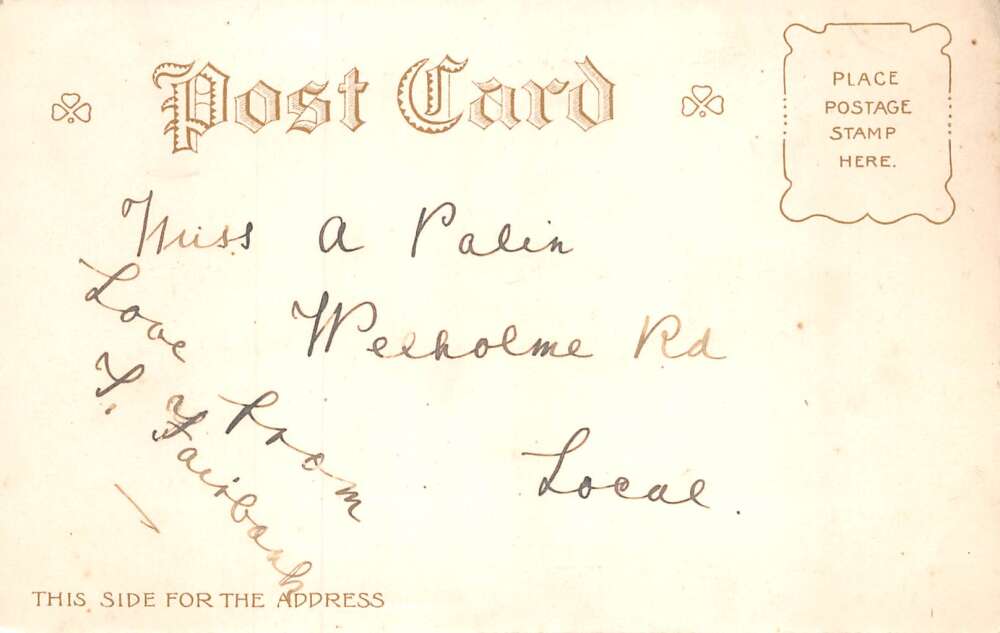 Post Card
PLACE
POSTAGE
STAMP
HERE.
Miss A Palin
Welholme Rd
Local.
Love from
F. Fairbank
THIS SIDE FOR THE ADDRESS